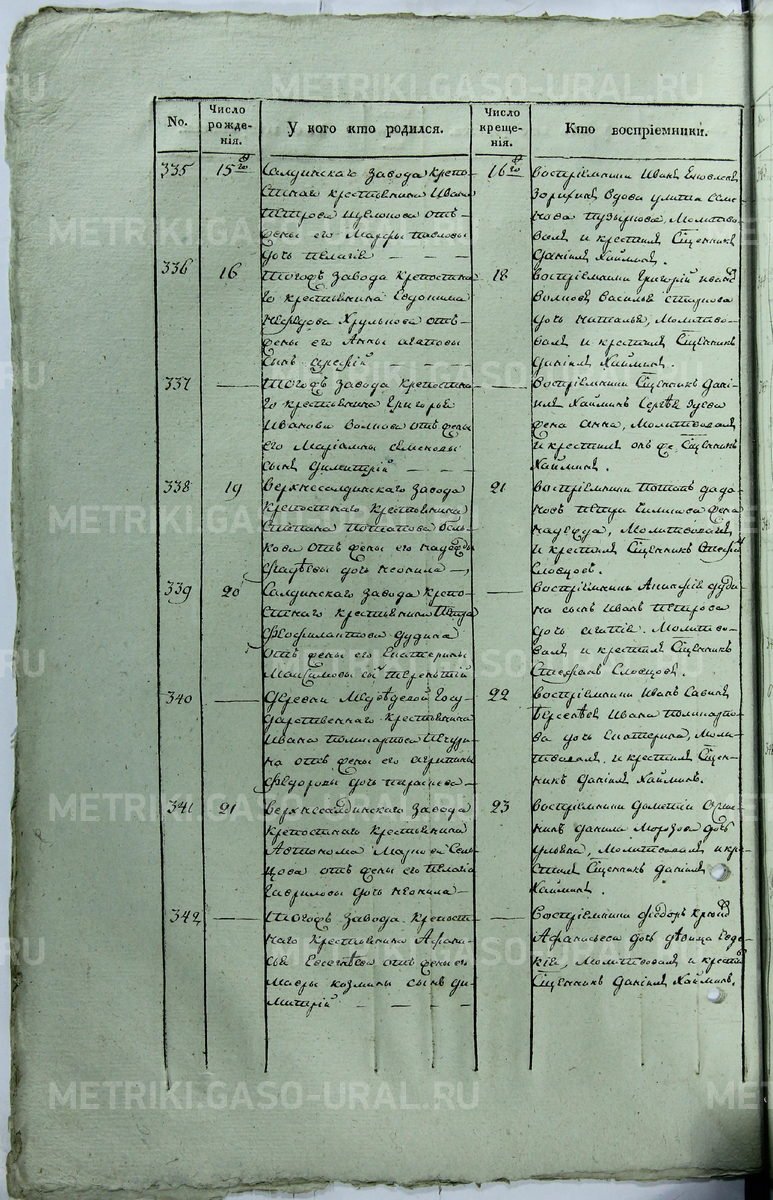 METRIKI.GASO-URAL.RU
No.
Число рожде- нія.
У кого кто родился.
Число креще- нія.
Кто воспріемники.
335
15го
Салдинскаго завода крепо-
стнаго крестьянина Ивана
Петрова отъ
жены его Марфы Павловы
дочь Пелагія
16го
воспріемники Иванъ Яковлевъ
Зорихинъ вдова улита Семе-
нова Пузырнова, Молитво-
валъ и крестилъ Священникъ
Даніилъ Хайминъ.
336
16
Тогожъ завода крепостна-
го крестьянина Евдокима
Хрулькова отъ
жены его Анны Агаповы
сынъ
18
воспріемники Григорій Ивановъ
Волковъ Василья
дочь Наталья, Молитво-
валъ и крестилъ Священникъ
Даніилъ Хайминъ.
337
Тогожъ завода крепостна-
го крестьянина Григорья
Иванова Волкова отъ жены
его Маріамны Семеновы
сынъ Димитрій
воспріемники Священникъ Дані-
илъ Хайминъ Сергѣя Зуева
жена Анна, Молитвовалъ
и крестилъ онъ же Священникъ
Хайминъ.
338
19
Верхнесалдинскаго завода
крепостнаго крестьянина
Степана Потапова
отъ жены его Надежды
дочь Неонила
21
воспріемники Потапъ
Петра жена
Надежда, Молитвовалъ
и крестилъ Священникъ Стефанъ
Словцовъ.
339
20
Салдинскаго завода крепо-
стнаго крестьянина Петра
Феофилактова Дудина
отъ жены его Екатерины
Максимовы сынъ Терентій
воспріемники Дуди-
на сынъ Иванъ Петрова
дочь Агапія. Молитво-
валъ и крестилъ Священникъ
Стефанъ Словцовъ.
340
Деревни Медведевой Госу-
дарственнаго крестьянина
Ивана Поликарпова
отъ жены его Агрипины
Федоровы дочь
22
воспріемники Иванъ Савинъ
Ивана Поликарпо-
ва дочь Екатерина, Моли-
твовалъ и крестилъ Священ-
никъ Даніилъ Хайминъ.
341
21
Верхнесалдинскаго завода
крепостнаго крестьянина
Автонома Маркова
отъ жены его Пелагіи
Гавриловы дочь Неонила
23
воспріемники
Данила Морозова дочь
Ульяна, Молитвовалъ и кре-
стилъ Священникъ Даніилъ
Хайминъ.
342
Тогожъ завода крепост-
наго крестьянина Афана-
сья Евсегнѣева отъ жены его
Мавры Козмины сынъ Ди-
митрій
воспріемники Федоръ
Афанасьева дочь дѣвица Евдо-
кія, Молитвовалъ и крестилъ
Священникъ Даніилъ Хайминъ.